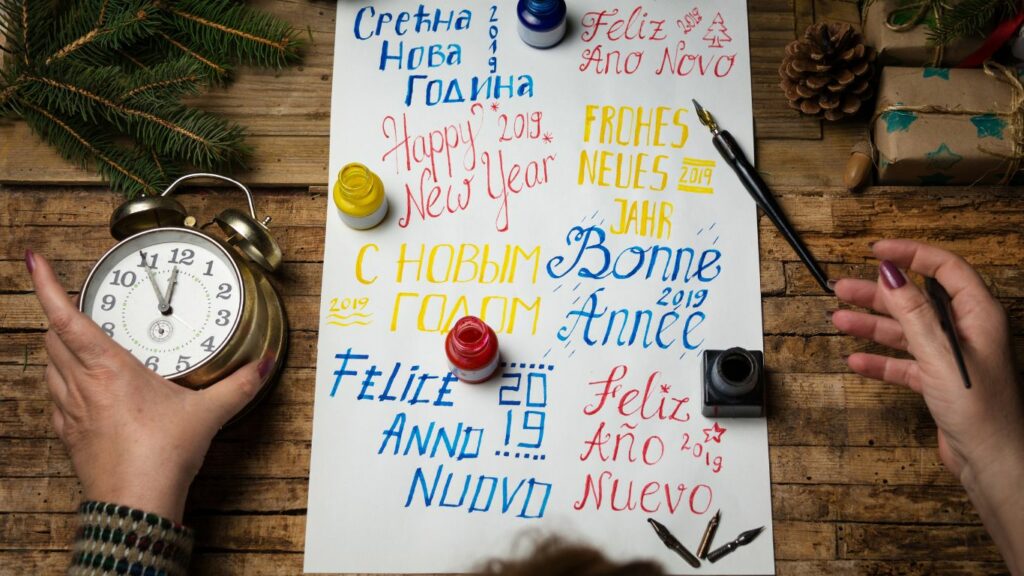 Срећна
2019
Нова
Година
Feliz 2019
Ano Novo
Happy 2019
New Year
FROHES
NEUES 2019
JAHR
С НОВЫМ
2019 ГОДОМ
Bonne
2019
Année
FELICE 20
ANNO 19
NUOVO
Feliz
Año 2019
Nuevo
10 11 12 1 2 3 4 5 6